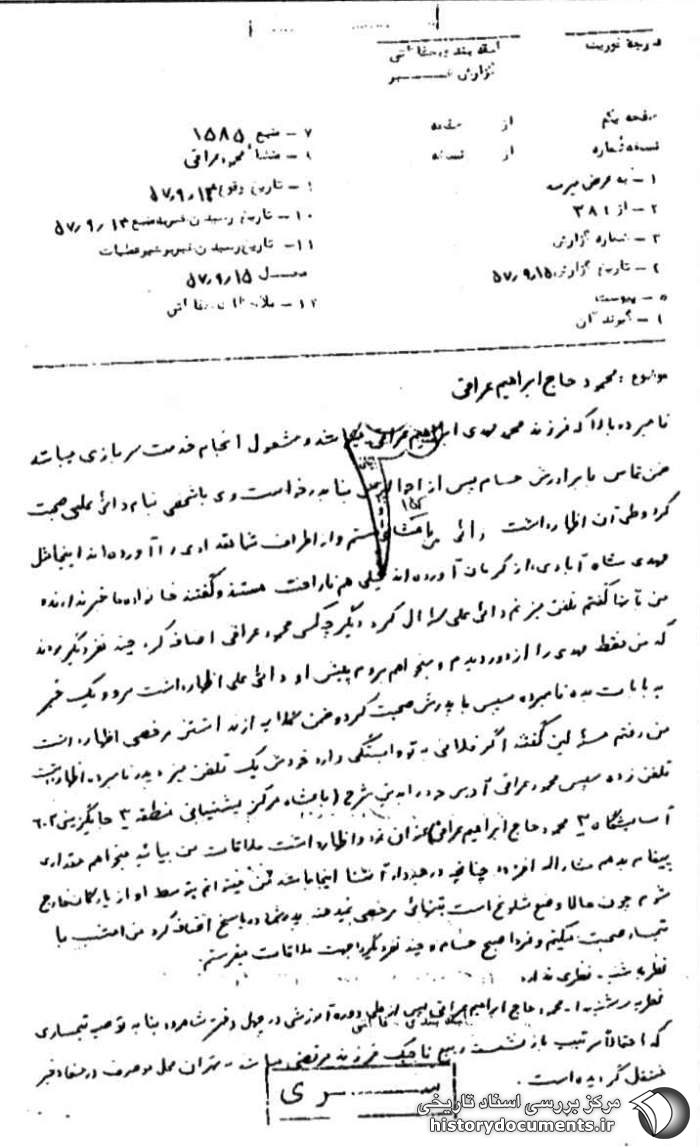 درجه فوریت
طبقه بندی حفاظتی
گزارش خبر
صفحه یکم از صفحه
نسخه شماره از نسخه
۱ - به عرض میرسد
۲ - از ۳۸۱
۳ - شماره گزارش
۴ - تاریخ گزارش ۵۷٫۹٫۱۵
۵ - پیوست
۶ - گیرندگان
۷ - منبع ۱۵۸۵
۸ - منشأ محمود عراقی
۹ - تاریخ وقوع ۵۷٫۹٫۱۳
۱۰ - تاریخ رسیدن خبر به منبع ۵۷٫۹٫۱۳
۱۱ - تاریخ رسیدن خبر به رهبر عملیات
محل ۵۷٫۹٫۱۵
۱۲ - ملاحظات حفاظتی
موضوع : محمود حاج ابراهیم عراقی
نامبرده بالا که فرزند مهدی ابراهیم عراقی میباشد و مشغول انجام خدمت سربازی میباشد
ضمن تماس با برادرش حسام پس از بنا به درخواست وی با شخصی بنام دائی علی صحبت
کرد و طی آن اظهار داشت دائی من هستم و از اطراف شما تعدادی را آورده اند اینجا مثل
مهدی شاه آبادی، از کرمان آورده اند خیلی هم ناراحت هستند و گفتند خانواده ما خبر ندارند
من تا گفتم تلفن میزنم دائی علی سؤال کرد دیگر چه کسی محمود عراقی اضافه کرد چند نفر دیگر بودند
که من فقط مهدی را از دور دیدم و میخواهم بروم پیش او دائی علی اظهار داشت برو و یک خبر
به بابات بده نامبرده سپس با پدرش صحبت کرد و ضمن گلایه از نداشتن مرخصی اظهار داشت
من رفتم مسئولین گفتند اگر فلانی به تو دلبستگی دارد خودش یک تلفن میزد پدر نامبرده اظهار داشت
تلفن زده سپس محمود عراقی آدرس خود را به این شرح (پادگان مرکز پشتیبانی منطقه ۳ جایگزینی ۶۰۲
آسایشگاه ۳ محمود حاج ابراهیم عراقی) عنوان نمود و اظهار داشت ملاقات من بیائید میخواهم مقداری
پیغام بدهم مشارالیه افزود چنانچه درجه دار آشنا اینجا باشد من میتوانم توسط او از پادگان خارج
شوم چون حالا وضع شلوغ است بتنهائی مرخصی نمیدهند پدرش در پاسخ اضافه کرد من امشب با
صحبت میکنم و فردا صبح حسام و چند نفر دیگر را جهت ملاقات میفرستم.
نظریه شنبه - نظری ندارد
نظریه سه شنبه - محمود حاج ابراهیم عراقی پس از طی دوره آموزشی در چهل دختر شاهرود بنا به توصیه تیمساری
که احتمالاً سرتیپ بازنشست فرزند مرتضی میباشد به تهران محل موصوف در مفاد خبر
منتقل گردیده است.
طبقه بندی حفاظتی
ســـری
مرکز بررسی اسناد تاریخی
historydocuments.ir